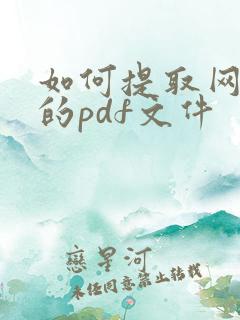 如何提取网
的pdf文件
恋星河
未经同意禁止转载